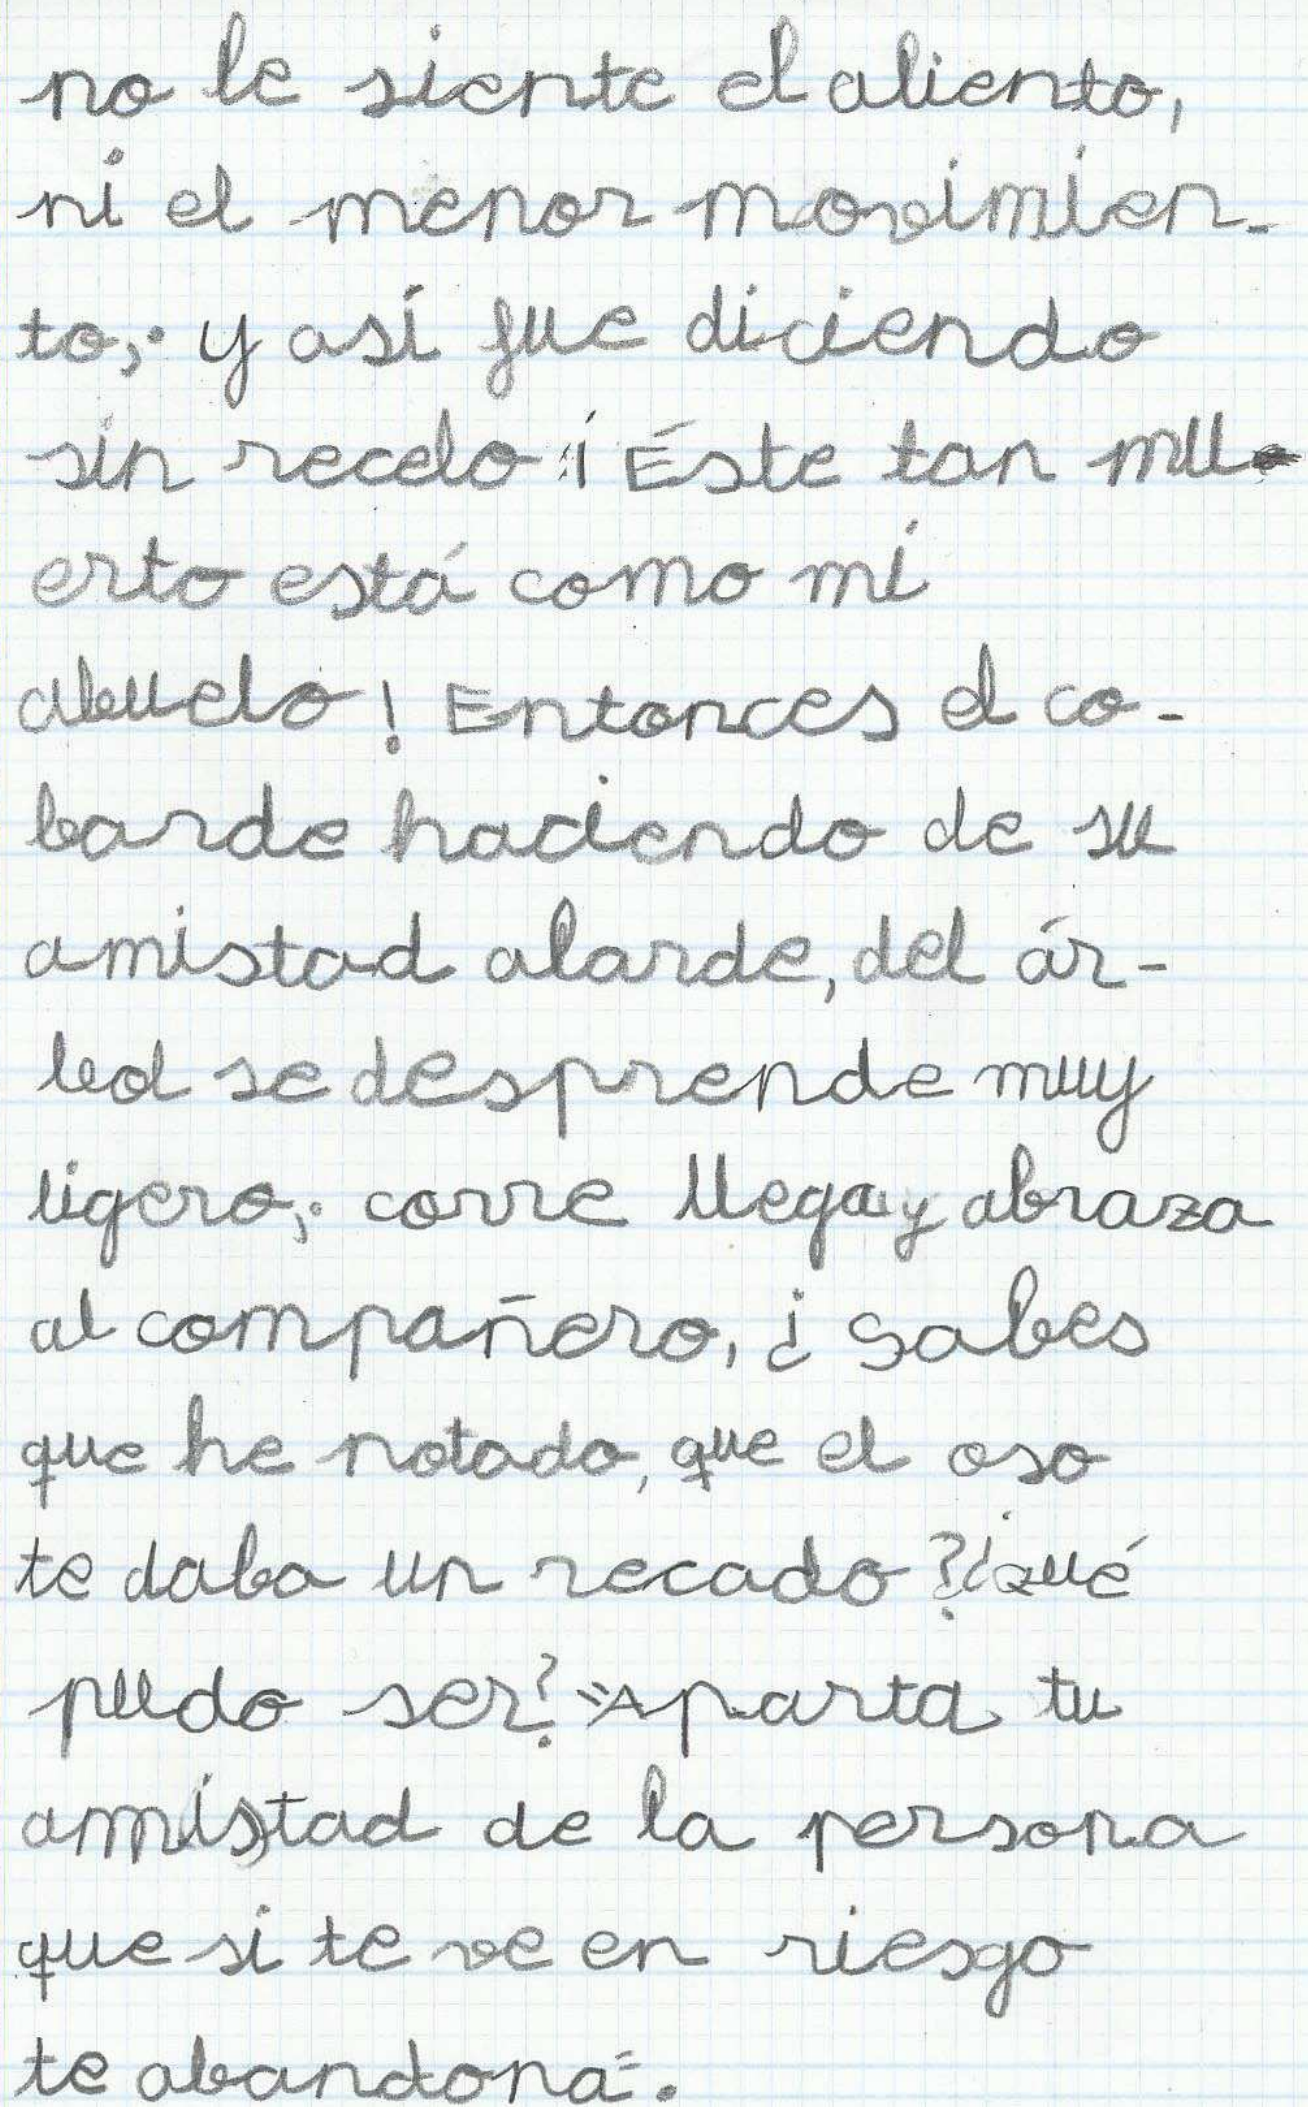 no le siente el aliento,
ni el menor movimien-
to;. y así fue diciendo
sin recelo :¡ Éste tan mu
erto está como mi
abuelo! Entonces el co-
barde haciendo de su
amistad alarde, del ár-
bol se desprende muy
ligero;. corre llega y abraza
al compañero, ¿Sabes
que he notado, que el oso
te daba un recado?¿Qué
pudo ser? "Aparta tu
amistad de la persona
que si te ve en riesgo
te abandona".